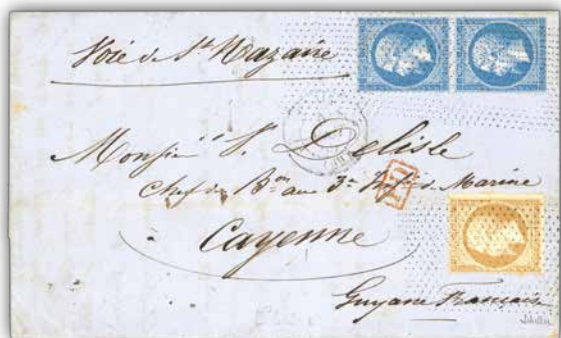 Voie de St Nazaire
Monsieur P. Delisle
Chef de Bon au 3e Infie de Marine
PD
à Cayenne
Guyane Française